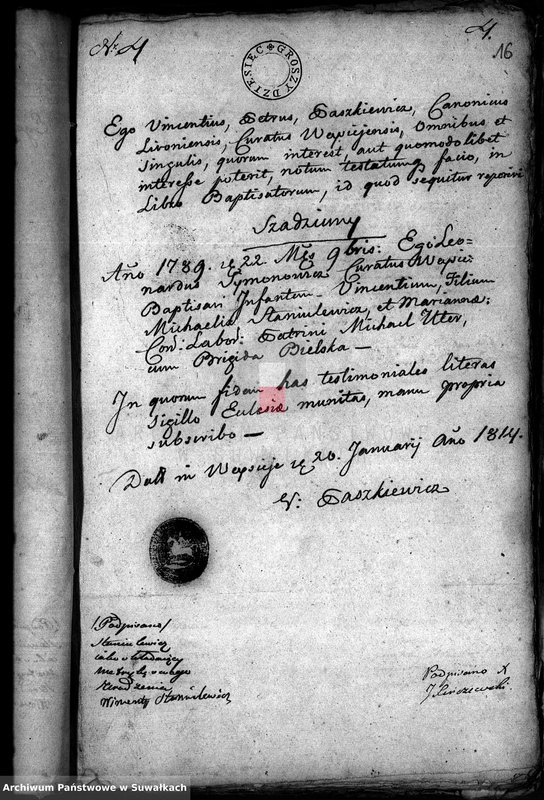 № 4
4.
16
DZIESIĘC GROSZY
Ego Vincentius, Petrus, Paszkiewicz, Canonicus
Livoniensis, Curatus Wepsijensis, Omnibus et
singulis, quorum interest, aut quomodolibet
interesse poterit, notum testatumq facio, in
Libro Baptisatorum, id quod sequitur reperiri
Szadziuny
Año 1789. 22. Męs 9bris: Ego Leo=
nardus Symonowicz Curatus Wepsi:
Baptisavi Infantem Vincentium, Filium
Michaelis Staniulewicz, et Marianna:
Con: Labor: Patrini Michael Uter,
cum Brigida Bielska —
In quorum fidem has testimoniales literas
Sigillo Eclesiæ munitas, manu propria
subscribo —
Datt in Wepsieje 20. Januarij Año 1814.
V: Paszkiewicz
/Podpisano/
Staniulewicz
iako składaiący
metrykę swego
urodzenia
Wincenty Staniulewicz
Podpisano X
Archiwum Państwowe w Suwałkach